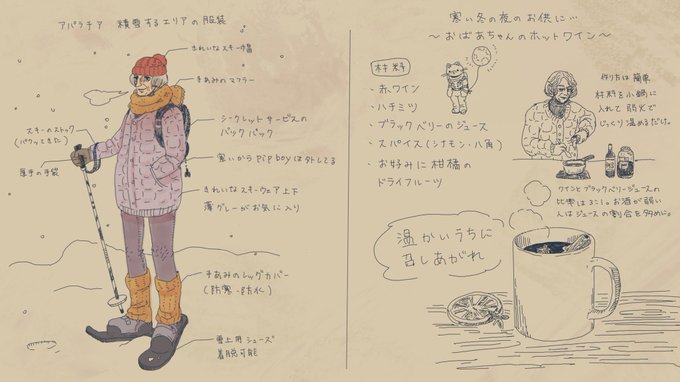 アパラチア 積雪するエリアの服装
きれいなスキー帽
手あみのマフラー
シークレットサービスの
バックパック
スキーのストック
(パクッてきた)
厚手の手袋
寒いからpip boyは外してる
きれいなスキーウェア上下
薄グレーがお気に入り
手あみのレッグカバー
(防寒・防水)
雪上用シューズ
着脱可能
寒い冬の夜のお供に…
～おばあちゃんのホットワイン～
材料
・赤ワイン
・ハチミツ
・ブラックベリーのジュース
・スパイス(シナモン・八角)
・お好みに柑橘の
ドライフルーツ
作り方は簡単
材料を小鍋に
入れて弱火で
じっくり温めるだけ。
ワインとブラックベリージュースの
比率は3:1。お酒が弱い
人はジュースの割合を多めに。
温かいうちに
召しあがれ